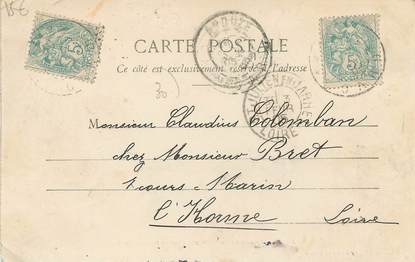 15€
CARTE POSTALE
Ce côté est exclusivement réservé à l'adresse
30
Monsieur Claudius Colomban
chez Monsieur Bret
Cours Marin
l'Horme Loire
5
5
LOIRE